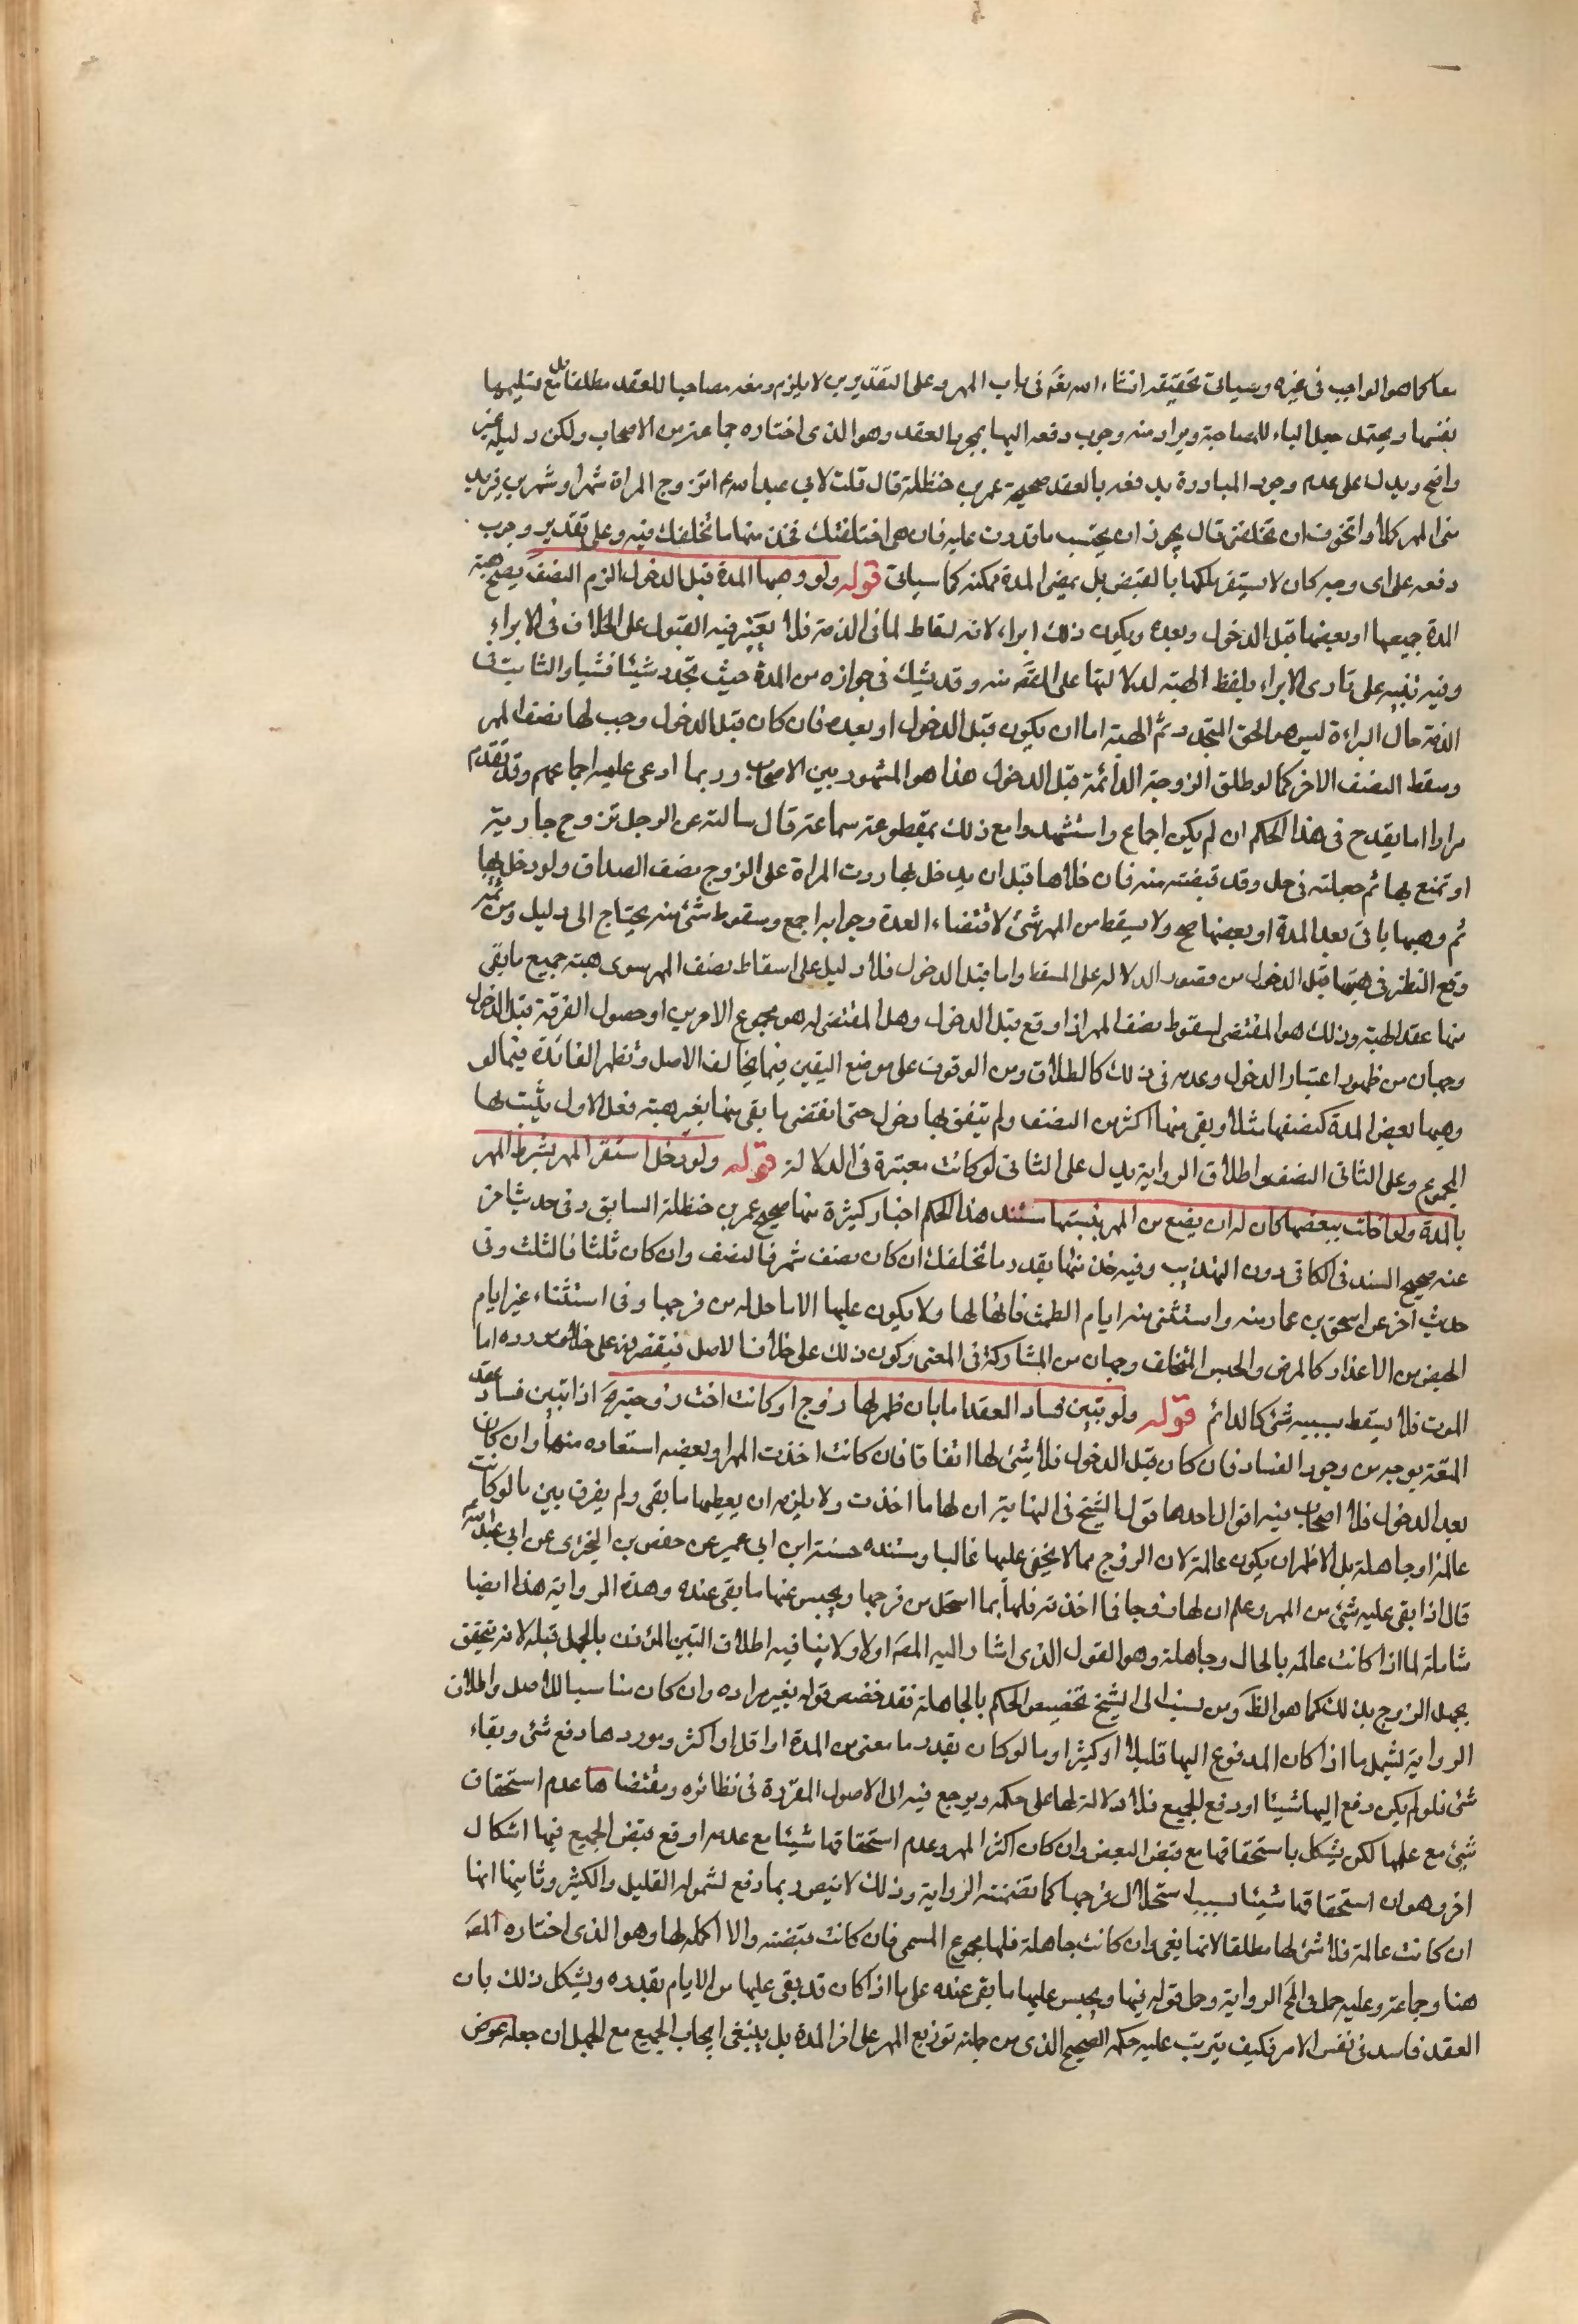 معا كما هو الواجب في غيره وسياتي تحقيقه انشاء الله تعم في باب المهر وعلى التقديرين لا يلزم دفعه مصاحبا للعقد مطلقا بل مع تسليمها
نفسها ويحتمل جعل الباء للمصاحبة ويراد منه وجوب دفعه اليها بمجرد العقد وهو الذي اختاره جماعة من الاصحاب ولكن دليله غير
واضح ويدل على عدم وجوب المبادرة بدفعه بالعقد صحيحة عمر بن حنظلة قال قلت لابي عبد الله ع اتزوج المراة شهرا وشهرين فيريد
مني المهر كملا واتخوف ان تخلفني قال يجوز ان يحتبس ما قدرت عليه فان هي اخلفتك فخذ منها ما تخلفك فيه وعلى تقدير وجوب
دفعه على اى وجه كان لا يستقر ملكها بالقبض بل بمضى المدة ممكنة كما سياتي قوله ولو وهبها المدة قبل الدخول الزم النصف يصح هبة
المدة جميعها او بعضها قبل الدخول وبعده ويكون ذلك ابراء لانه اسقاط لما في الذمة فلا يعتبر فيه القبول على الخلاف في الابراء
وفيه تنبيه على تادى الابراء بلفظ الهبة لدلالتها على المقص منه وقد يشك في جوازه من المدة حيث تجدد شيئا فشيا والثابت في
الذمة حال البراءة ليس هو الحق المتجدد ثم الهبة اما ان يكون قبل الدخول او بعده فان كان قبل الدخول وجب لها نصف المهر
وسقط النصف الاخر كما لو طلق الزوجة الدائمة قبل الدخول هذا هو المشهور بين الاصحاب وربما ادعى عليه اجماعهم وقد تقدم
مرارا ما يقدح في هذا الحكم ان لم يكن اجماع واستشهدوا مع ذلك بمقطوعة سماعة قال سالته عن الرجل تزوج جارية
او تمتع بها ثم جعلته في حل وقد قبضته منه فان خلاها قبل ان يدخل بها ردت المراة على الزوج نصف الصداق ولو دخل بها
ثم وهبها باقي بعد المدة او بعضها صح ولا يسقط من المهر شئ لاقتضاء العدة وجوابه اجمع وسقوط شئ منه يحتاج الى دليل ومن ثم
وقع النظر في هبتها قبل الدخول من قصور الدلالة على المسقط واما قبل الدخول فلا دليل على اسقاط نصف المهر سوى هبة جميع ما بقي
منها عقد الهبة وذلك هو المقتضى لسقوط نصف المهر اذا وقع قبل الدخول وهل المقتضى له هو مجموع الامرين او حصول الفرقة قبل الدخول
وجهان من ظهور اعتبار الدخول وعدمه في ذلك كالطلاق ومن الوقوف على موضع اليقين فيما يخالف الاصل وتظهر الفائدة فيما لو
وهبها بعض المدة كنصفها مثلا وبقى منها اكثر من النصف ولم يتفق بها دخول حتى انقضى ما بقى منها بغير هبة فعلى الاول يثبت لها
المجموع وعلى الثاني النصف واطلاق الرواية يدل على الثاني لو كانت معتبرة في الدلالة قوله ولو دخل استقر المهر بشرط المهر
بالمدة ولو اخلت ببعضها كان له ان يضع من المهر بنسبتها مستند هذا الحكم اخبار كثيرة منها صحيح عمر بن حنظلة السابق وفي حديث اخر
عنه صحيح السند في الكافي دون التهذيب وفيه خذ منها بقدر ما تخلفك ان كان نصف شهر فالنصف وان كان ثلثا فالثلث وفى
حديث اخر عن اسحق بن عمار منه واستثنى منه ايام الطمث فانها لها ولا يكون عليها الا ما حل له من فرجها وفى استثناء غير ايام
الحيض من الاعذار كالمرض والحبس المتخلف وجهان من المشاركة في المعنى وكون ذلك على خلاف الاصل فيقتصر فيه على خلاف مورده اما
الموت فلا يسقط بسببه شئ كالدائم قوله ولو تبين فساد العقد اما بان ظهر لها زوج او كانت اخت زوجته اذا تبين فساد عقد
المتعة بوجه من وجوه الفساد فان كان قبل الدخول فلا شئ لها اتفاقا فان كانت اخذت المهر او بعضه استعاده منها وان كان
بعد الدخول فللاصحاب فيه اقوال احدها قول الشيخ في النهاية ان لها ما اخذت ولا يلزمه ان يعطيها ما بقى ولم يفرق بين ما لو كانت
عالمة او جاهلة بل الاظهر ان يكون عالمة لان الزوج مما لا يخفى عليها غالبا ومستنده حسنة ابن ابي عمير عن حفص بن البختري عن ابي عبد الله ع
قال اذا بقى عليه شئ من المهر وعلم ان لها زوجا فما اخذته فلها بما استحل من فرجها ويحبس عنها ما بقى عنده وهذه الرواية هذا ايضا
شاملة لما اذا كانت عالمة بالحال وجاهلة وهو القول الذى اشار اليه المص اولا ولا ينافيه اطلاق التبين المؤذن بالجهل قبله لانه يتحقق
بجهل الزوج بذلك كما هو الظ ومن نسب الى الشيخ تخصيص الحكم بالجاهلة فقد خصص قوله بغير مراده وان كان مناسبا للاصل واطلاق
الرواية يشمل ما اذا كان المدفوع اليها قليلا او كثيرا وما لو كان بقدر ما مضى من المدة او اقل او اكثر وموردها دفع شئ وبقاء
شئ فلو لم يكن دفع اليها شيئا او دفع الجميع فلا دلالة لها على حكمه ويرجع فيه الى الاصول المقررة في نظائره ومقتضاها عدم استحقاق
شئ مع علمها لكن يشكل باستحقاقها مع قبض البعض وان كان اكثر المهر وعدم استحقاقها شيئا مع عدمه او قع قبض الجميع فيها اشكال
اخر وهو ان استحقاقها شيئا بسبب استحلال فرجها كما تضمنته الرواية وذلك لا يتصور بما دفع لشموله القليل والكثير وثانيها انها
ان كانت عالمة فلا شئ لها مطلقا لانها بغي وان كانت جاهلة فلها مجموع المسمى فان كانت قبضته والا اكمله لها وهو الذى اختاره المص
هنا وجماعة وعليه حمل في المخ الرواية وحمل قوله فيها ويحبس عليها ما بقى عنده على ما اذا كان قد بقى عليها من الايام بقدره ويشكل ذلك بان
العقد فاسد في نفس الامر فكيف يترتب عليه حكم الصحيح الذى من جملته توزيع المهر على افراد المدة بل ينبغى ايجاب الجميع مع الجهل ان جعله عوض